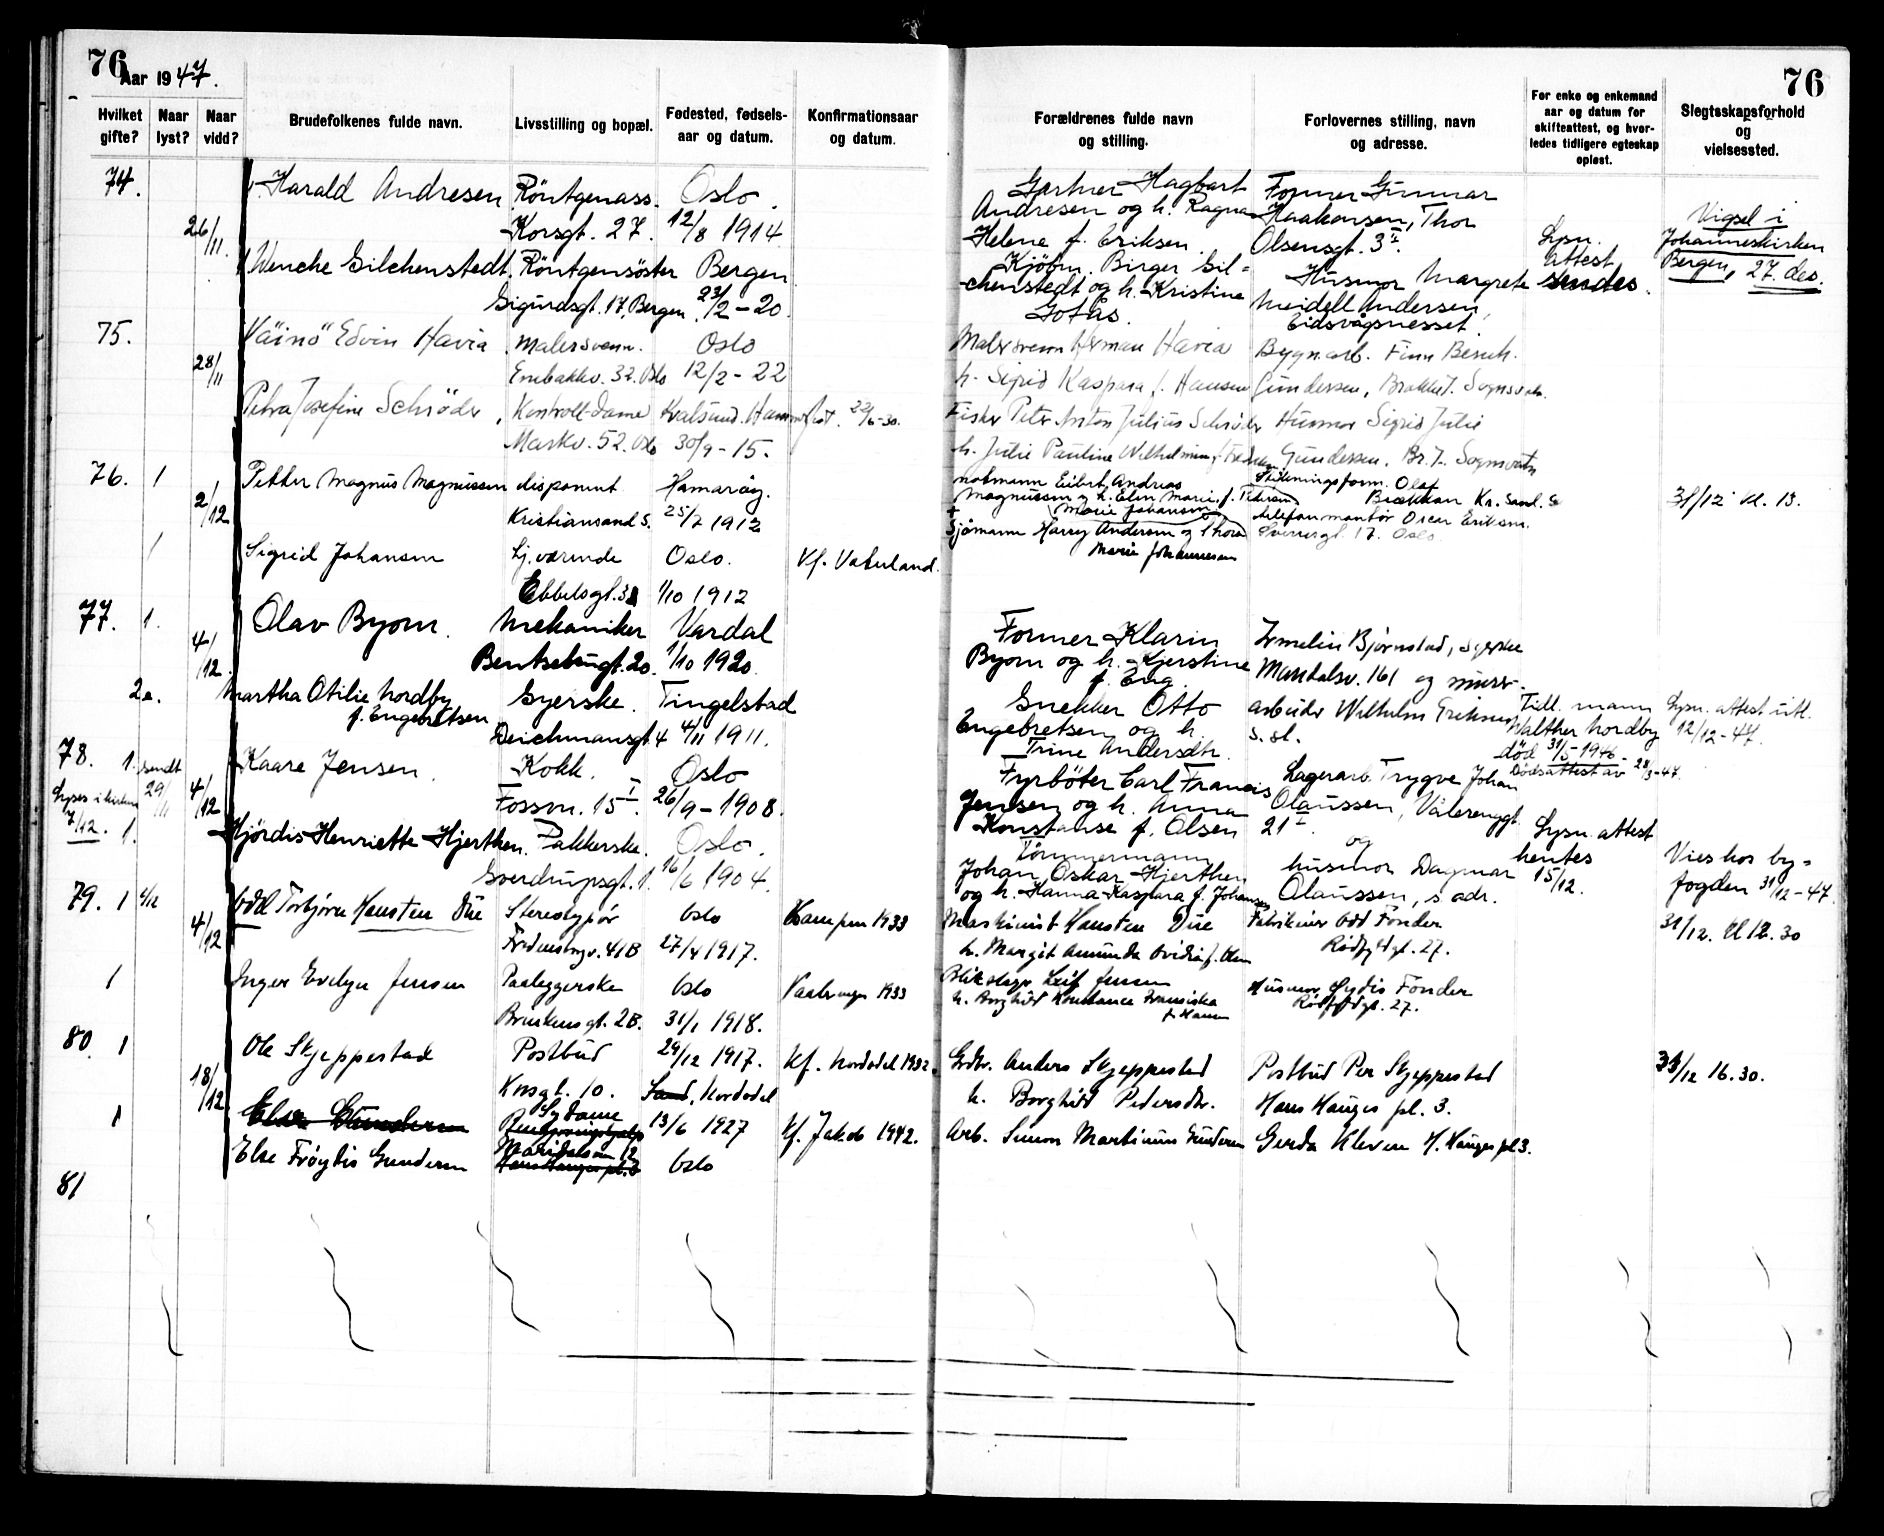 76
Aar 1947.
76
Hvilket gifte?
Naar lyst?
Naar vidd?
Brudefolkenes fulde navn.
Livsstilling og bopæl.
Fødested, fødsels-
aar og datum.
Konfirmationsaar
og datum.
Forældrenes fulde navn
og stilling.
Forlovernes stilling, navn
og adresse.
For enke og enkemand
aar og datum for
skifteattest, og hvor-
ledes tidligere egteskap
opløst.
Slegtsskapsforhold
og
vielsessted.
74.
26/11.
Harald Andresen
Röntgenass.
Korsgt. 27.
Oslo.
12/8 1914
Gartner Hagbart
Andresen og h. Ragna
Helene f. Eriksen.
Former Gunnar
Haakonsen, Thor
Olsensgt. 3 II.
Wenche Gilchenstedt.
Röntgensöster
Sigurdsgt. 17, Bergen.
Bergen
23/2 - 20.
Kjöbm. Birger Gil-
chenstedt og h. Kristine
Gotås.
Husmor Margrete
Meidell Andersen,
Eidsvågsnesset.
Lysn.
attest
sendes.
Vigsel i
Johanneskirken
Bergen, 27. des.
75.
28/11
Väinö Edvin Havia
Malersvenn.
Enebakkv. 32. Oslo
Oslo
12/2 - 22
Malersvenn Herman Havia
h. Sigrid Kaspara f. Hansen
Bygn.arb. Finn
Gundersen, Sognsvatn.
Petra Josefine Schröder,
Kontroll-dame
Markv. 52. Oslo
Kvalsund. Hammerfest.
30/9 - 15.
22/6-30.
Fisker Peter Anton Julius Schröder
h. Julie Pauline Wilhelmine f.
Husmor Sigrid Julie
Gundersen. Br. Sognsvatn
76.
1
2/12
Petter Magnus Magnussen
disponent
Kristiansand S.
Hamarøy.
25/7 1912
Notmann Eibert Andreas
Magnussen og h. Elen Marie f. Petersen
Olaf
Brækkan Kr. Sand. S
31/12 kl. 13.
1
Sigrid Johansen
hj.værende
Ebbelsgt. 3
Oslo.
1/10 1912
Kf. Vaterland.
Marie Johansen
+
Sjømann Harry Andersen og Thora
Marie Johannesen
Telefonmontør Oscar Eriksen.
Sverresgt. 17. Oslo.
77.
1.
4/12.
Olav Byom.
Mekaniker
Bentsebrugt. 20.
Vardal
1/10 1920.
Former Klarin
Byom og h. Kjerstine
f. Eng.
Irmelin Bjørnstad, syerske
Maridalsv. 161 og murer-
2.
Martha Otilie Nordby
f. Engebretsen
Syerske.
Deichmansgt 4
Tingelstad
4/11 1911.
Snekker Otto
Engebretsen og h.
Trine Andersdtr.
arbeider Wilhelm Eriksen
s. st.
Tidl. mann
Walther Nordby
død 31/5-1946.
Dødsattest av 28/3-47.
Lysn. attest utl.
12/12-47.
78.
1.
sendt
29/11
4/12
Lyses i kirken
7/12.
Kaare Jensen.
Kokk.
Fossvn. 15 I.
Oslo
26/9-1908.
Fyrböter Carl Francis
Jensen og h. Anna
Konstanse f. Olsen
Lagerarb. Trygve Johan
Olaussen, Vålerenggt.
21 I.
og
1.
Hjördis Henriette Hjerthen.
Pakkerske.
Sverdrupsgt. 1.
Oslo.
16/6 1904.
Tömmermann
Johan Oskar Hjerthen
og h. Hanna Kaspara f. Johansen
husmor Dagmar
Olaussen, s. adr.
Lysn. attest
hentes
15/12.
Vies hos by-
fogden 31/12-47.
79.
1
4/12
4/12
Odd Torbjørn Hansten Due
Stereotypør
41B
Oslo
27/4 1917.
Kampen 1933
Maskinist Hansten Due
h. Margit Amunda Ovidia f. Olsen
Fabrikeier Odd Fonder
Rødfyldgt. 27.
31/12. kl 12.30
1
Inger Evelyn Jensen
Paaleggerske
2B.
Oslo
31/1 1918.
Vaalerengen 1933
Blikslager Leif Jensen
h. Borghild Konstance Fransiska
f. Hansen
Husmor Gydis Fonder
Rødfyldgt. 27.
80.
1
18/12
Ole Skjeppestad
Postbud
Korsgt. 10.
29/12 1917.
Sand, Nordodal
Kf. Nordodal 1932.
Grdbr. Anders Skjeppestad
h. Borghild Pedersdtr.
Postbud Per Skjeppestad
Hans Hauges pl. 3.
31/12 16.30.
1
Else Gundersen
Else Frøydis Gundersen
Sydame
Maridalsvn 12
Hans Hauges pl. 3
13/6 1927
Oslo
Kf. Jakob 1942.
Arb. Simon Martinius Gundersen
Gerda Kleven H. Hauges pl 3.
81